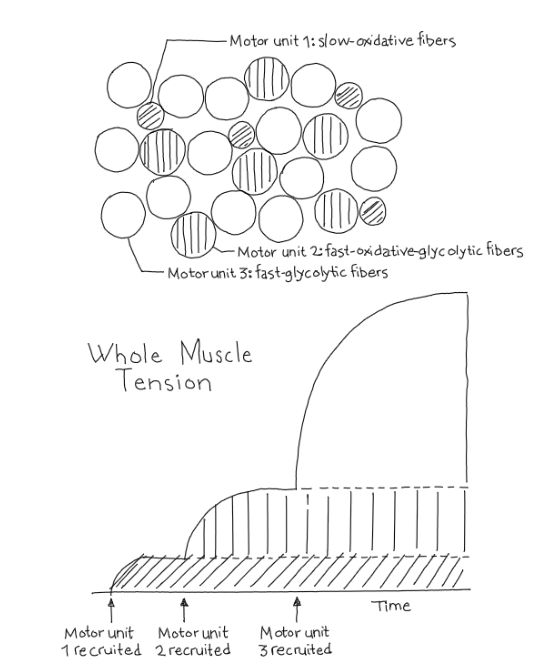 Motor unit 1: slow-oxidative fibers
Motor unit 2: fast-oxidative-glycolytic fibers
Motor unit 3: fast-glycolytic fibers
Whole Muscle
Tension
Time
Motor unit
1 recruited
Motor unit
2 recruited
Motor unit
3 recruited